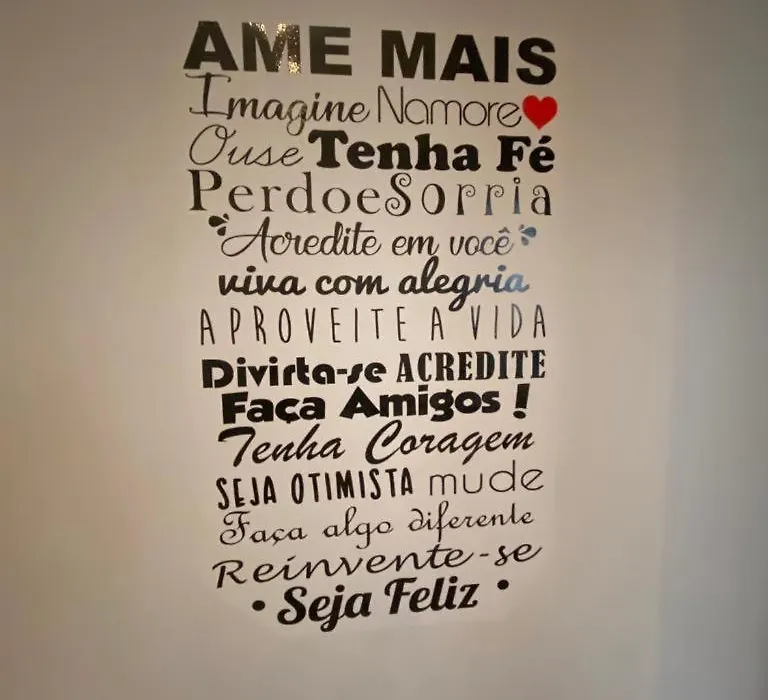 AME MAIS
Imagine Namore
Ouse Tenha Fé
Perdoe Sorria
Acredite em você
viva com alegria
APROVEITE A VIDA
Divirta-se ACREDITE
Faça Amigos !
Tenha Coragem
SEJA OTIMISTA mude
Faça algo diferente
Reinvente-se
• Seja Feliz •